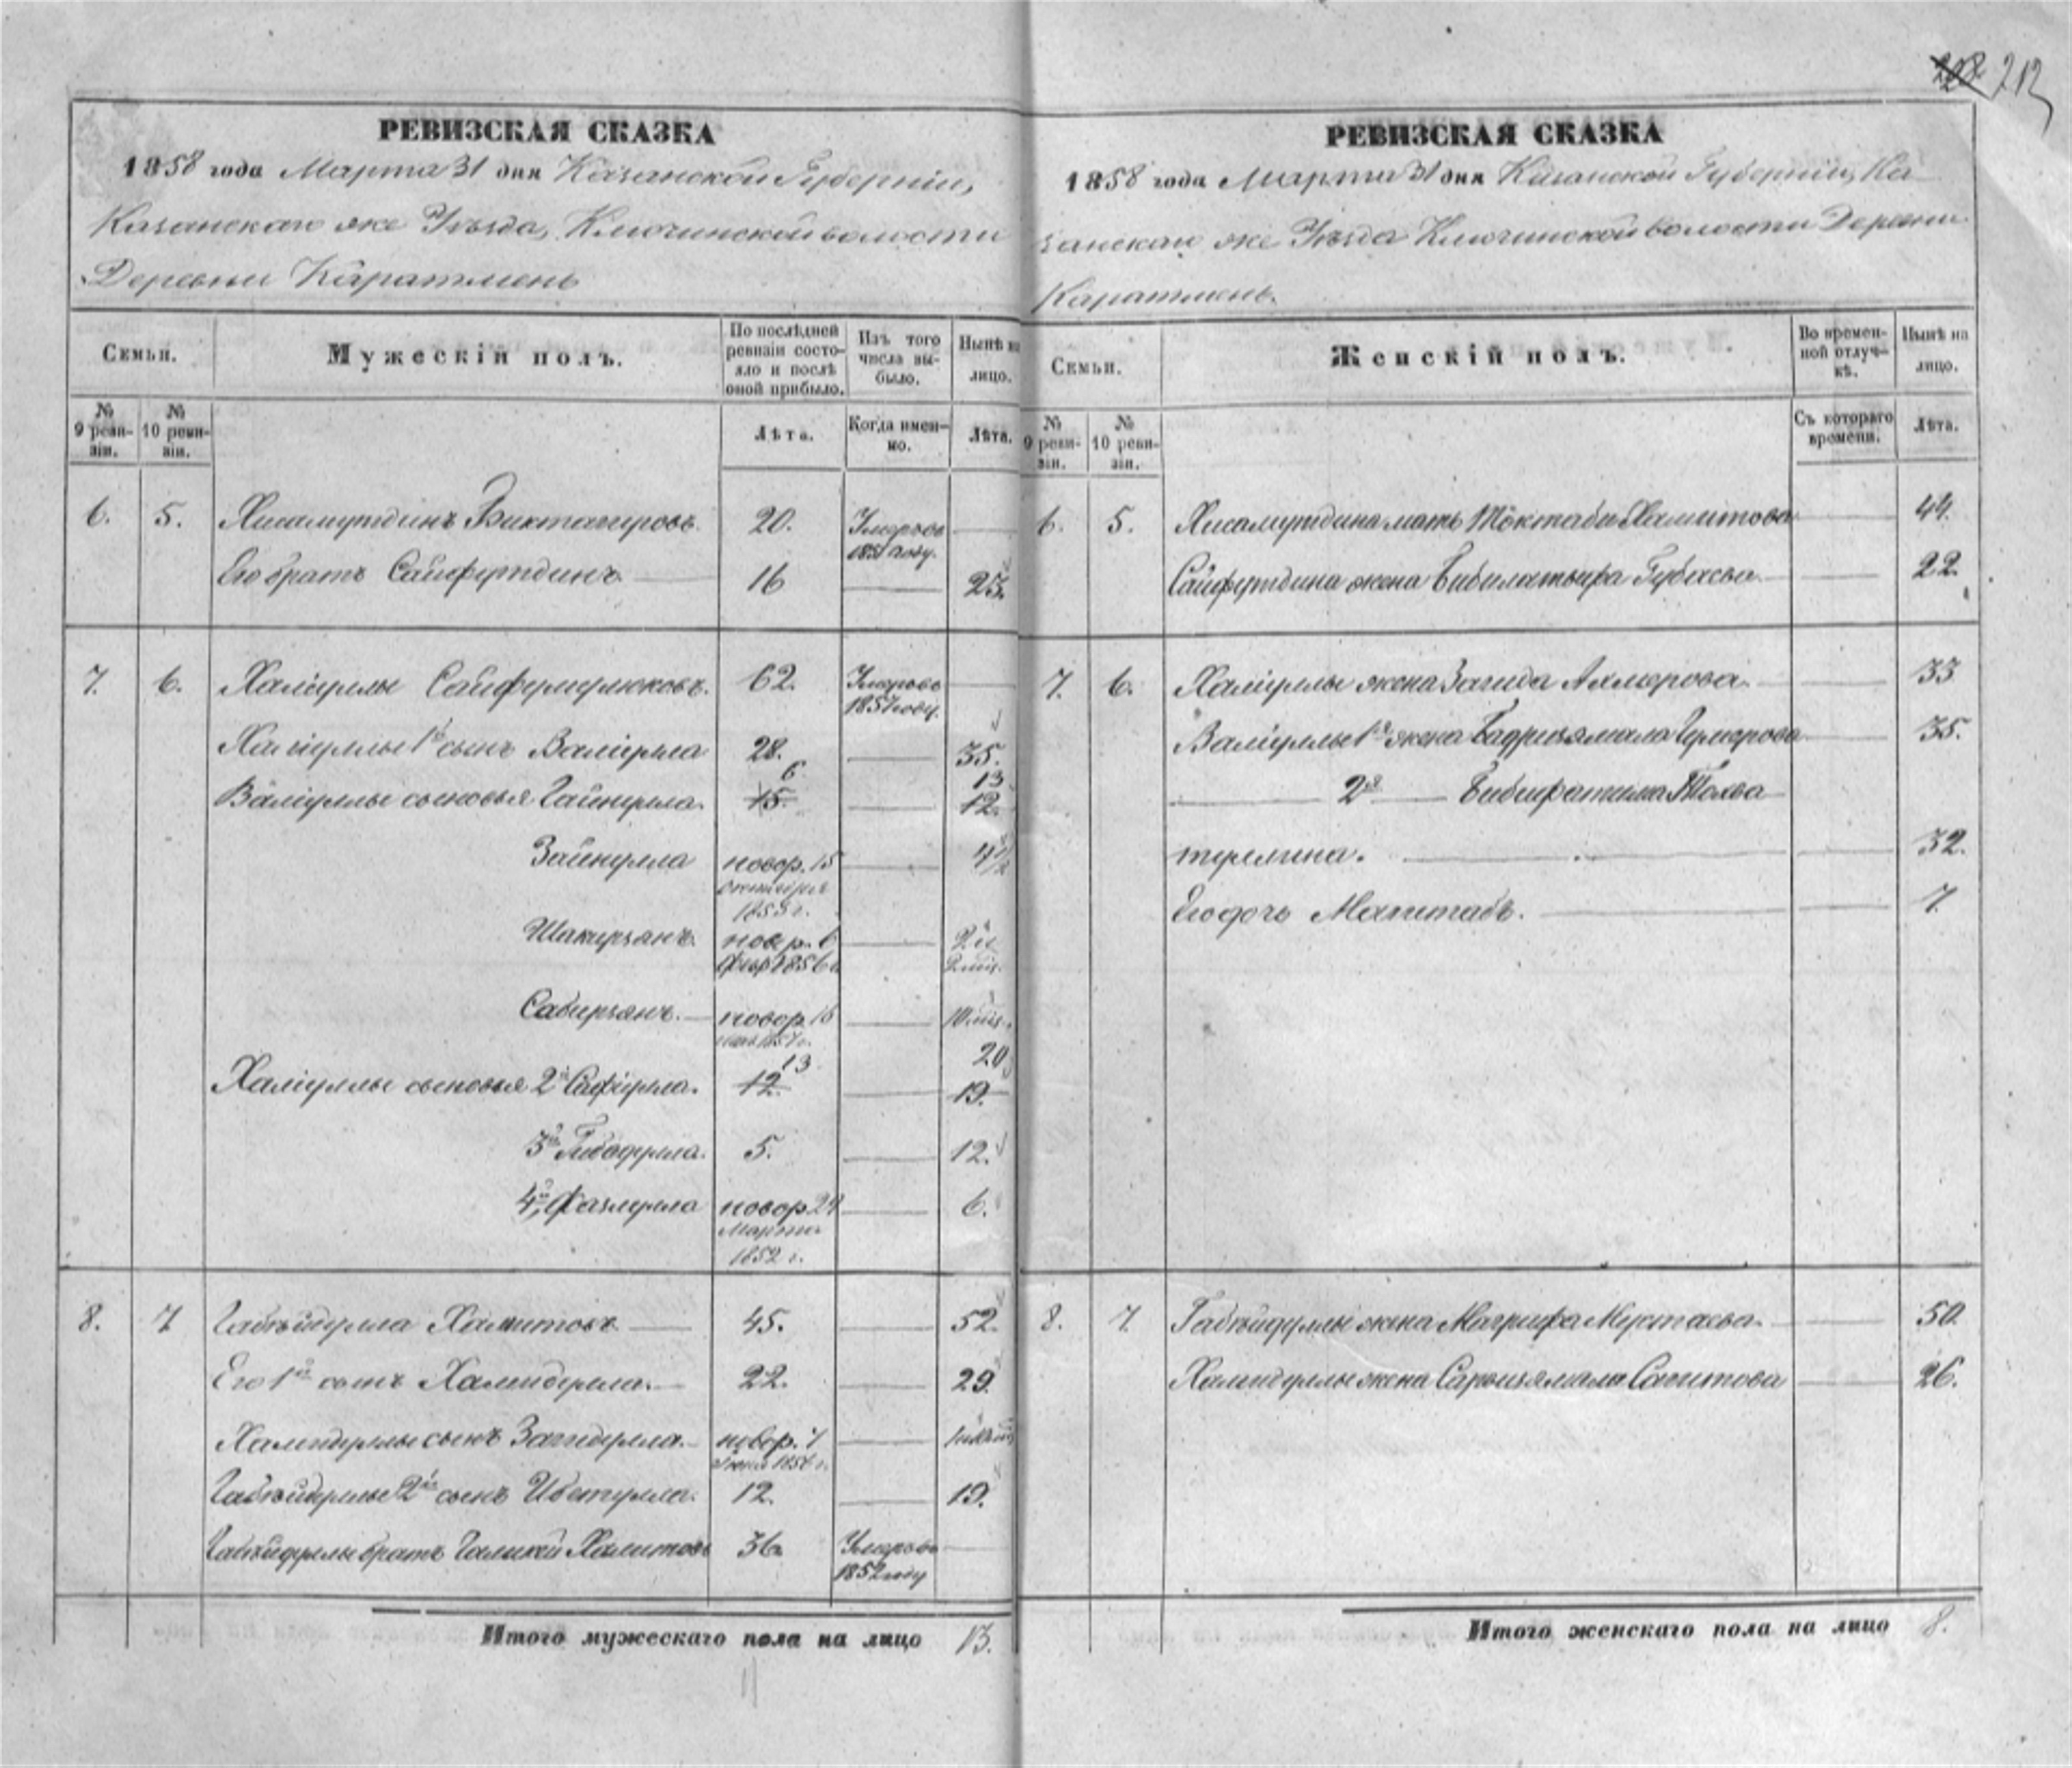 212
РЕВИЗСКАЯ СКАЗКА
1858 года Марта 31 дня Казанской Губерніи,
Казанскаго же Уѣзда, Ключинской волости
Деревни Каратмень
Семьи.
Мужескій полъ.
По послѣдней ревизіи состояло и послѣ оной прибыло.
Изъ того числа выбыло.
Нынѣ на лицо.
№ 9 ревизіи.
№ 10 ревизіи.
Лѣта.
Когда именно.
Лѣта.
6. 5. Хисамутдинъ Биктагировъ. 20. Умеръ въ 1851 году.
Его братъ Сайфутдинъ 16 23.
7. 6. Халіуллы Сайфулмулюковъ. 62. Умеръ въ 1857 году.
Халіуллы 1й сынъ Валіулла 28. 35.
Валіуллы сыновья Гайнулла. 15. 6 12. 13
Зайнулла новор. 15 октября 1853 г. 4½
Шакирзянъ. новор. 6 фев. 1856 г. 2 и 2 мѣс.
Сабирзянъ. новор. 16 1857 г. 10 мѣс.
Халіуллы сыновья 2й Сафіулла. 12. 13 19. 20
3й Гибадулла. 5. 12.
4й Фазлулла новор. 24 Марта 1852 г. 6.
8. 7 Габейдулла Хамитовъ 45. 52.
Его 1й сынъ Хамидулла. 22. 29.
Хамидуллы сынъ Загидулла. новор. 7 Іюня 1856 г.
Габейдуллы 2й сынъ Ибетулла. 12. 19.
Габейдуллы братъ Галикей Хамитовъ 36. Умеръ въ 1852 году
Итого мужескаго пола на лицо 13.
11
РЕВИЗСКАЯ СКАЗКА
1858 года Марта 31 дня Казанской Губерніи, Ка-
занскаго же Уѣзда Ключинской волости Деревни
Каратмень.
Семьи.
Женскій полъ.
Во временной отлучкѣ.
Нынѣ на лицо.
№ 9 ревизіи.
№ 10 ревизіи.
Съ котораго времени.
Лѣта.
6. 5. Хисамутдина мать Токтаби Хамитова 44.
Сайфутдина жена Бибилатыфа Губаева 22.
7. 6. Халіуллы жена Загида Ахмерова. 33
Валіуллы 1я жена Бадризямала Гумерова 35.
2я Бибифатима Тохва
туллина. 32.
Его дочь Магитабъ. 7.
8. 7. Габейдуллы жена Магруфа Мустаева. 50.
Хамидуллы жена Сарвизямала Сагитова 26.
Итого женскаго пола на лицо 8.